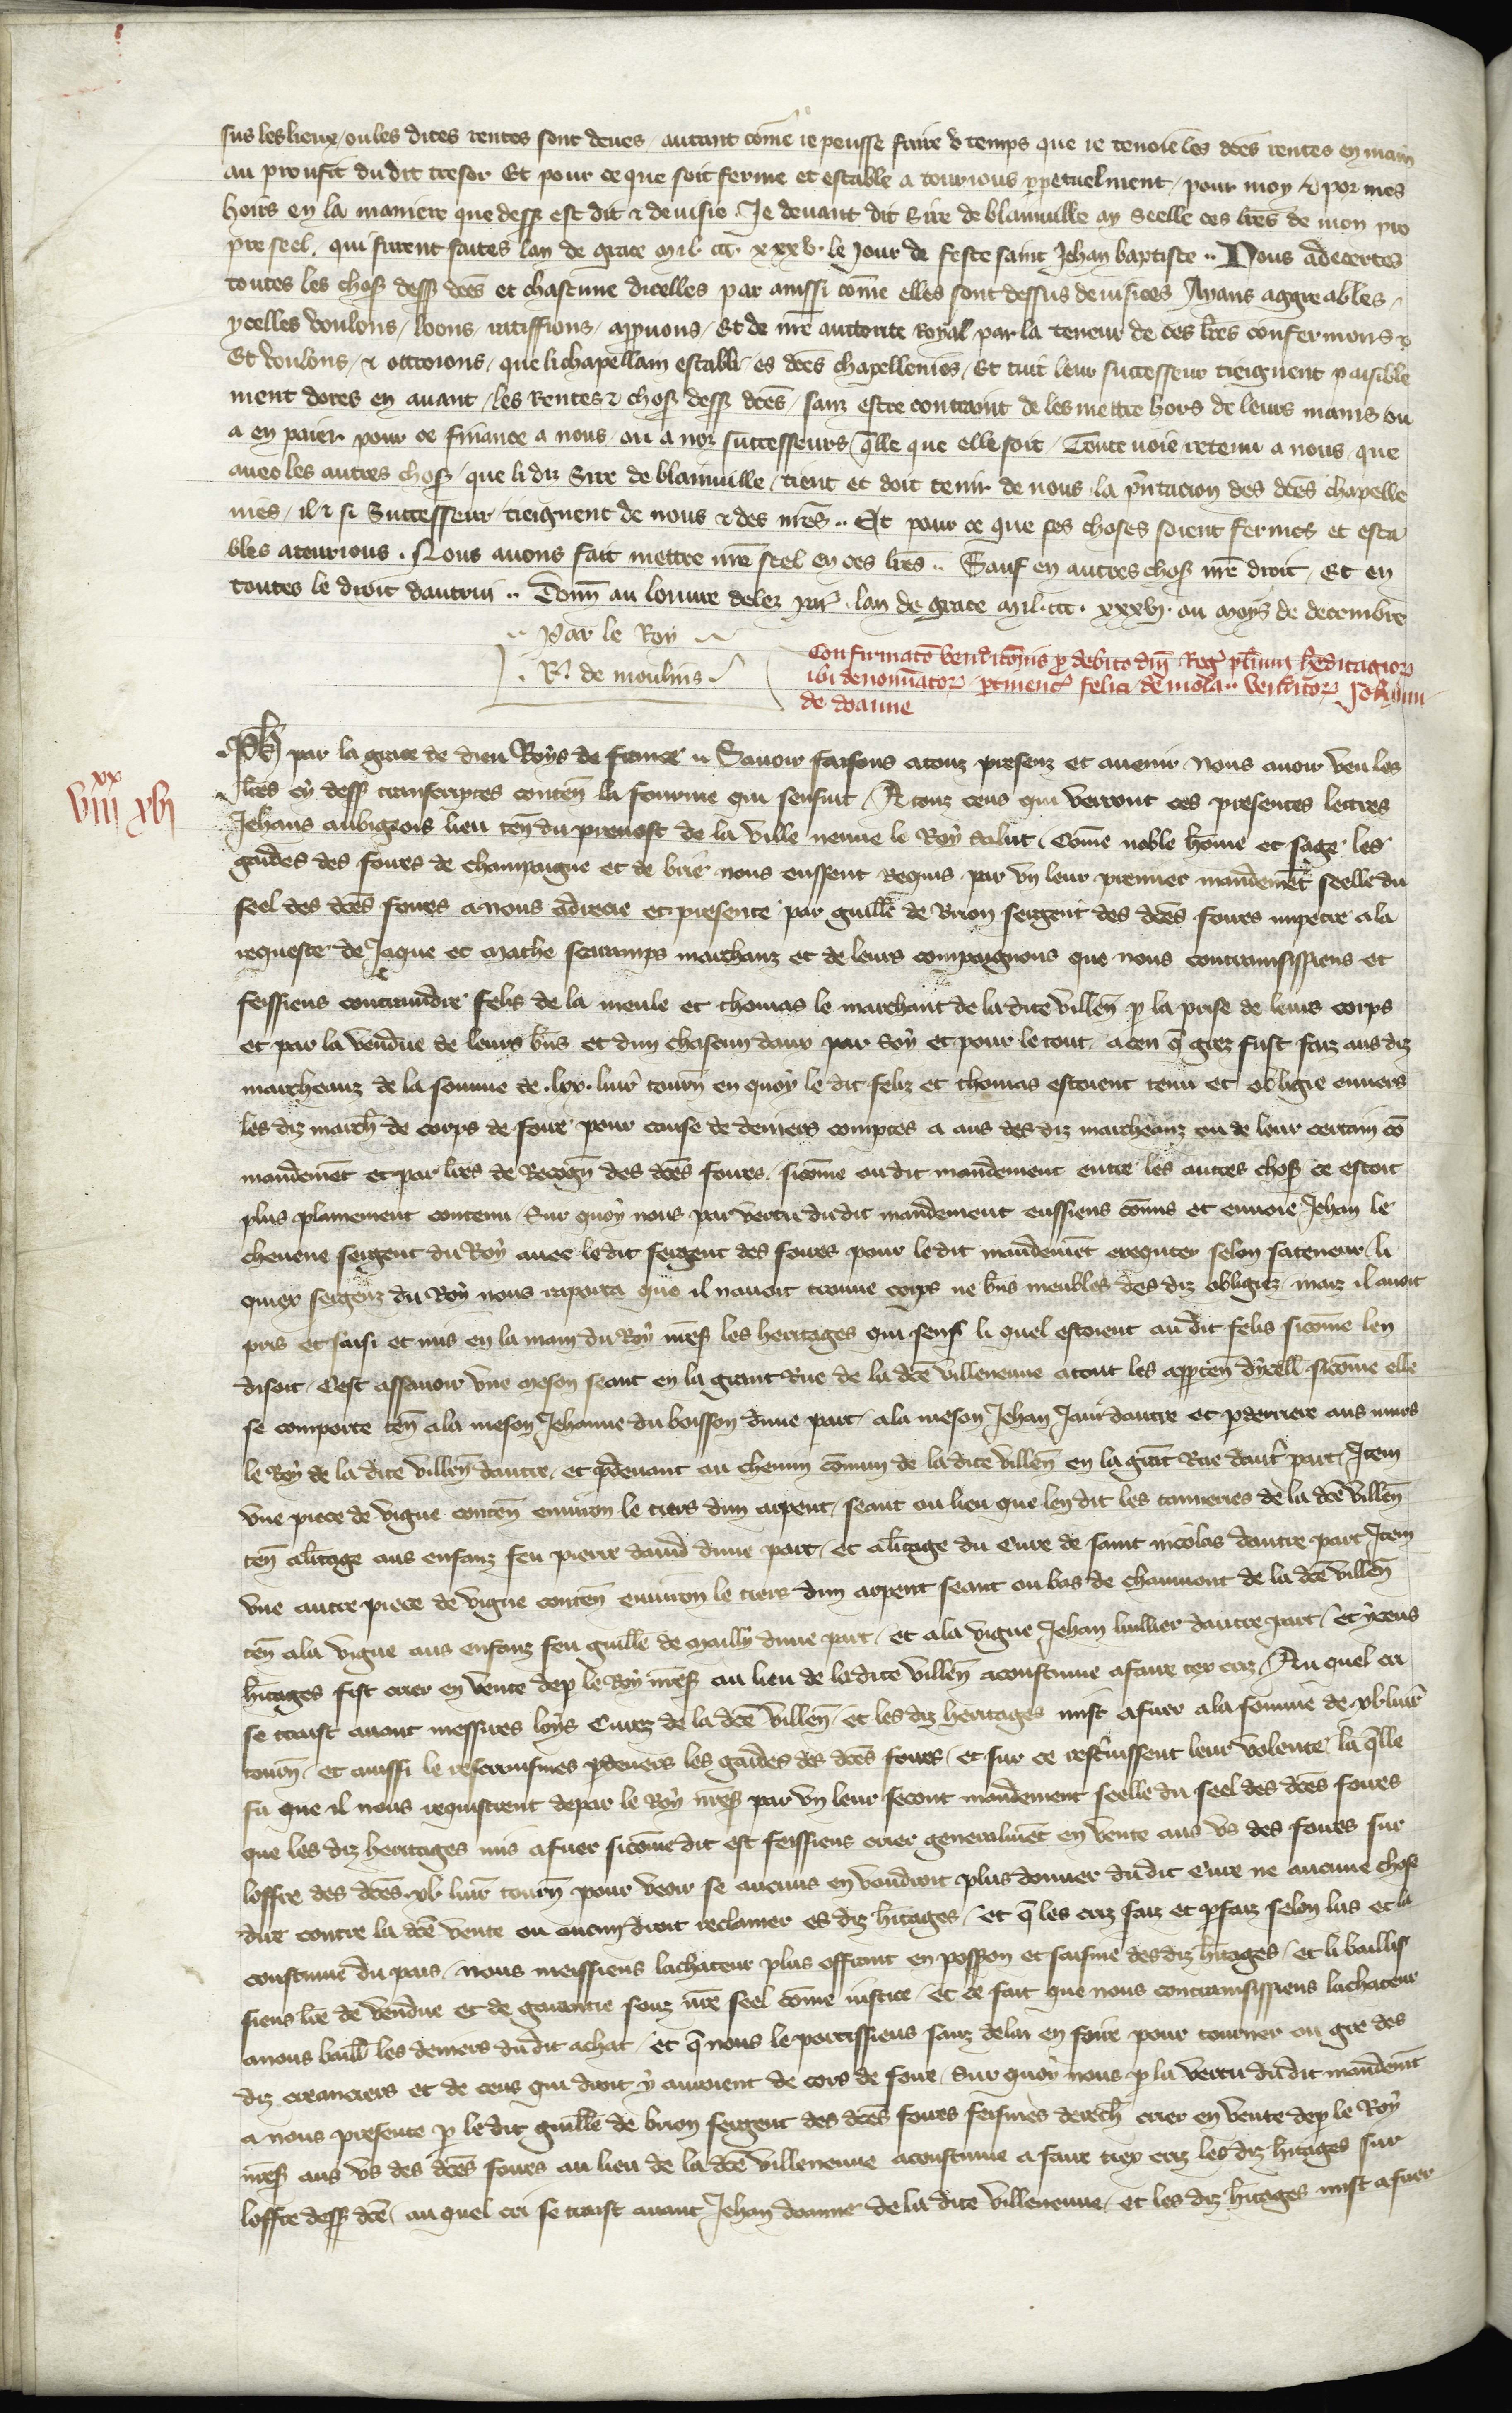 sus les lieux / ou les dites rentes sont deues / autant come ie peusse faire v temps que ie tenoie les dces rentes en main
au proufit dudit tresor Et pour ce que soit ferme et estable a tourious ppetuelment / pour moy & por mes
hoirs en la maniere que dess est dit & deuisie . Je deuant dit Sire de blainuille ay Seelle ces lres de mon pro
pre seel . qui furent faites lan de grace mil . ccc . xxxv . le Jour de feste saint Jehan baptiste .. Nous adecertes
toutes les choses dess dces et chascune dicelles par aussi come elles sont dessus deuisees Ayans aggreables /
ycelles voulons / loons / ratiffions / appuons / Et de nre auttorite Royal par la teneur de ces lres confermons &
Et voulons / & ottroions / que li chapellain establi / es dces chapellenies / Et tuit leur successeur tieignent paisible
ment dores en auant / les rentes & choses dess dces / sanz estre contraint de les mettre hors de leurs mains ou
a en paier pour ce finance a nous / ou a noz successeurs / qlle que elle soit / Toute uoie retenu a nous / que
auec les autres choses / que li diz Sire de blainuille / tient et doit tenir de nous la pntacion des dces chapelle
nies / il & si Successeur / tieignent de nous & des nres .. Et pour ce que ces choses soient fermes et esta
bles a tourious . Nous auons fait mettre nre seel en ces lres .. Sauf en autres choses nre droit / Et en
toutes le droit dautrui .. Donn au louure delez par . lan de grace mil . ccc . xxxvj . ou moys de decembre
Par le Roy
. R . de moulins .
Confirmato venditonis p debito dni Reg plium hereditagior
ibi denominator ptinent felici de mola .. venditor Johanni
de doanne
Ph par la grace de dieu Roys de france .. Sauoir faisons a touz presenz et auenir Nous auoir veu les
viii xx xvj
lres cy dess transcriptes conten la fourme qui sensuit / A touz ceus qui verront ces presentes lettres
Jehans aubigeois lieu ten du preuost de la ville neuue le Roy salut / Come noble home et sage les
gardes des foires de champaigne et de brie nous eussent Requis par vn leur premier mandement seelle du
seel des dces foires a nous adrecie et presente par guille de Brion sergent des dces foires impetre a la
requeste de Jaque et mathe scatamps marchanz et de leurs compaignons que nous contrainsissiens et
feissiens contraindre felis de la meule et thomas le marchant de la dite villen p la prise de leurs corps
et par la vendue de leurs bns et dun chascun daux par soy et pour le tout a ceu q grez fust faiz aus diz
marcheanz de la somme de . lxx . liur tourn en quoy le dit feliz et thomas estoient tenu et obligie enuers
les diz march de corps de foire pour cause de deniers comptes a aus des diz marcheanz ou de leur certain co
mandement et par lres de Recogn des dces foires . sicome ou dit mandement entre les autres choses ce estoit
plus plainement contenu / Sur quoy nous par vertu du dit mandement eussiens comis et enuoie Jehan le
cheuene sergent du Roy auec le dit sergent des foires pour le dit mandement exequter selon sa teneur / li
quiex sergenz du Roy nous raporta que il nauoit trouue corps ne bns meubles des diz obligez / maiz il auoit
pris et saisi et mis en la main du Roy nres les heritages qui sens li quel estoient au dit felis sicome len
disoit / Cest assauoir vne meson seant en la grant Rue de la dce villeneuue a tout les apparten dycelle sicome elle
se comporte ten a la meson Jehanne du boisson dune part / a la meson Jehan Jaui dautre et p derriere aus murs
le Roy de la dite villen dautre / et p deuant au chemin comun de la dite villen en la grant Rue daut part / Item
vne piece de vigne conten enuiron le tiers dun arpent / seant ou lieu que len dit les tanneries de la dce villen
ten a litage aus enfanz feu pierre dauid dune part / et a litage du Cure de saint nicolas dautre part / Item
vne autre piece de vigne conten enuiron le tiers dun arpent seant ou bas de chaumont de la dce villen
ten a la vigne aus enfanz feu guille de mailly dune part / et a la vigne Jehan luillier dautre part / Et yceus
hitages fist crier en vente dep le Roy nres au lieu de la dite villen acoustume a faire tex criz / Au quel cri
se traist auant messires loys Curez de la dce villen / et les diz heritages mist a fuer a la somme de xl liur
tourn / et aussi le rescrisimes p deuers les gardes des dces foires / et sur ce rescrisissent leur volente / la qlle
fu que il nous requistrent de par le Roy nres par vn leur secont mandement seelle du seel des dces foires
que les diz heritages mis a fuer sicome dit est feissiens crier generalment en vente aus vs des foires sur
loffre des dces xl liur tourn pour veoir se aucuns en voudroit plus donner du dit Cure ne aucune chose
dire contre la dce vente ou aucun droit reclamer es diz hitages / et q les criz faiz et pfaiz selon lus et la
coustume du pais / nous meissiens lachateur plus offrant en posson et saisine des diz hitages / et li baillis
siens lre de vendue et de garantie souz nre seel come iustice / et ce fait que nous contrainsissiens lachateur
a nous baill les deniers du dit achat / et q nous le portissiens sanz delai en foire pour tourner ou gre des
diz creanciers et de ceus qui droit y auroient de cors de foire / Sur quoy nous p la vertu du dit mandemnt
a nous presente p le dit guille de brion sergent des dces foires feismes derech crier en vente dep le Roy
nres aus vs des dces foires au lieu de la dce villeneuue acoustume a faire tiex criz les diz hitages sur
loffre dess dce / au quel cri se traist auant Jehan doanne de la dite villeneuue / et les diz hitages mist a fuer